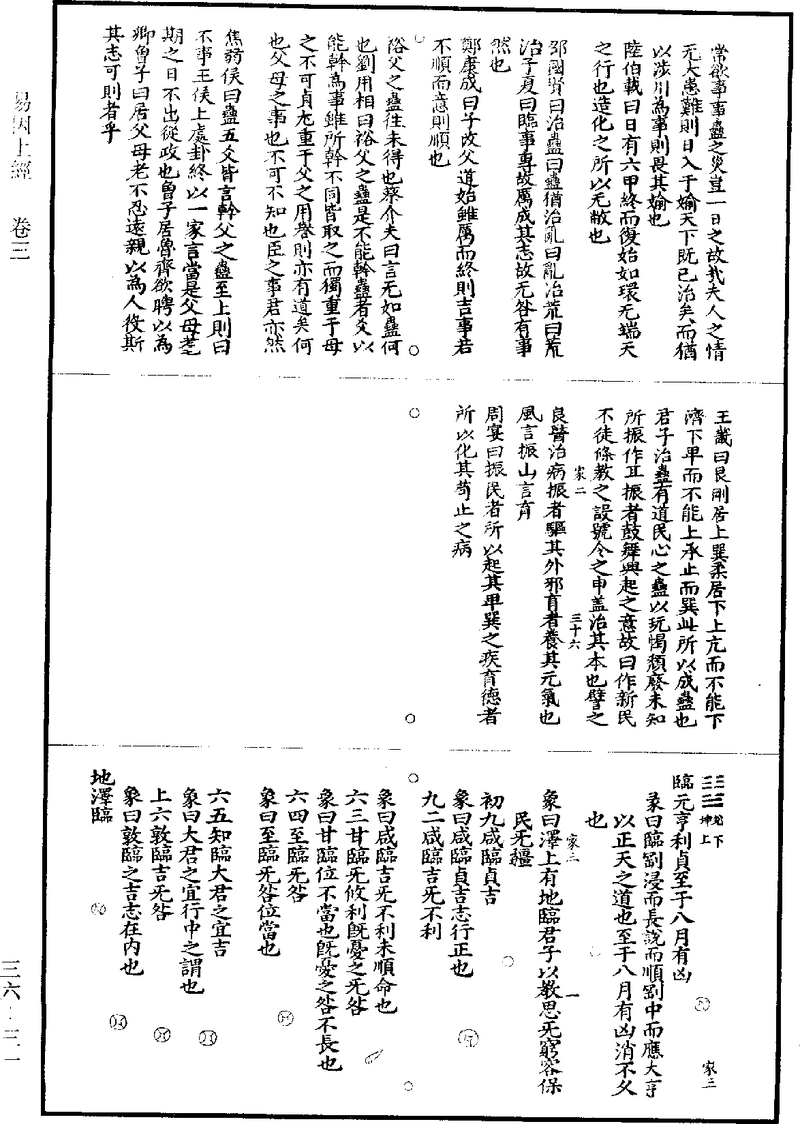 常欲事事蠱之災豈一日之故哉夫人之情
无大患難則日入于媮天下既已治矣而猶
以涉川為事則畏其媮也
陸伯載曰日有六甲終而復始如環无端天
之行也造化之所以无敝也
邵國賢曰治蠱曰蠱猶治亂曰亂治荒曰荒
治子夏曰臨事專故厲成其志故无咎有事
然也
鄭康成曰子改父道始雖厲而終則吉事若
不順而意則順也
裕父之蠱往未得也蔡介夫曰言无如蠱何
也劉用相曰裕父之蠱是不能幹蠱者爻以
能幹為事雖所幹不同皆取之而獨重于母
之不可貞尤重于父之用譽則亦有道矣何
也父母之事也不可不知也臣之事君亦然
焦弱侯曰蠱五爻皆言幹父之蠱至上則曰
不事王侯上處卦終以一家言當是父母耄
期之日不出從政也曾子居魯齊欲聘以為
卿曾子曰居父母老不忍遠親以為人役斯
其志可則者乎
王畿曰艮剛居上巽柔居下上亢而不能下
濟下卑而不能上承止而巽此所以成蠱也
君子治蠱有道民心之蠱以玩愒頹廢未知
所振作耳振者鼓舞興起之意故曰作新民
不徒條教之設號令之申蓋治其本也譬之
家二
三十六
良醫治病振者驅其外邪育者養其元氣也
風言振山言育
周宴曰振民者所以起其卑巽之疾育德者
所以化其苟止之病
兌下
坤上
家三
臨元亨利貞至于八月有凶
彖曰臨剛浸而長說而順剛中而應大亨
以正天之道也至于八月有凶消不久
也
家三
一
象曰澤上有地臨君子以教思无窮容保
民无疆
初九咸臨貞吉
象曰咸臨貞吉志行正也
九二咸臨吉无不利
象曰咸臨吉无不利未順命也
六三甘臨无攸利既憂之无咎
象曰甘臨位不當也既憂之咎不長也
六四至臨无咎
象曰至臨无咎位當也
六五知臨大君之宜吉
象曰大君之宜行中之謂也
上六敦臨吉无咎
象曰敦臨之吉志在內也
地澤臨
易因上經 卷三
三六-三一